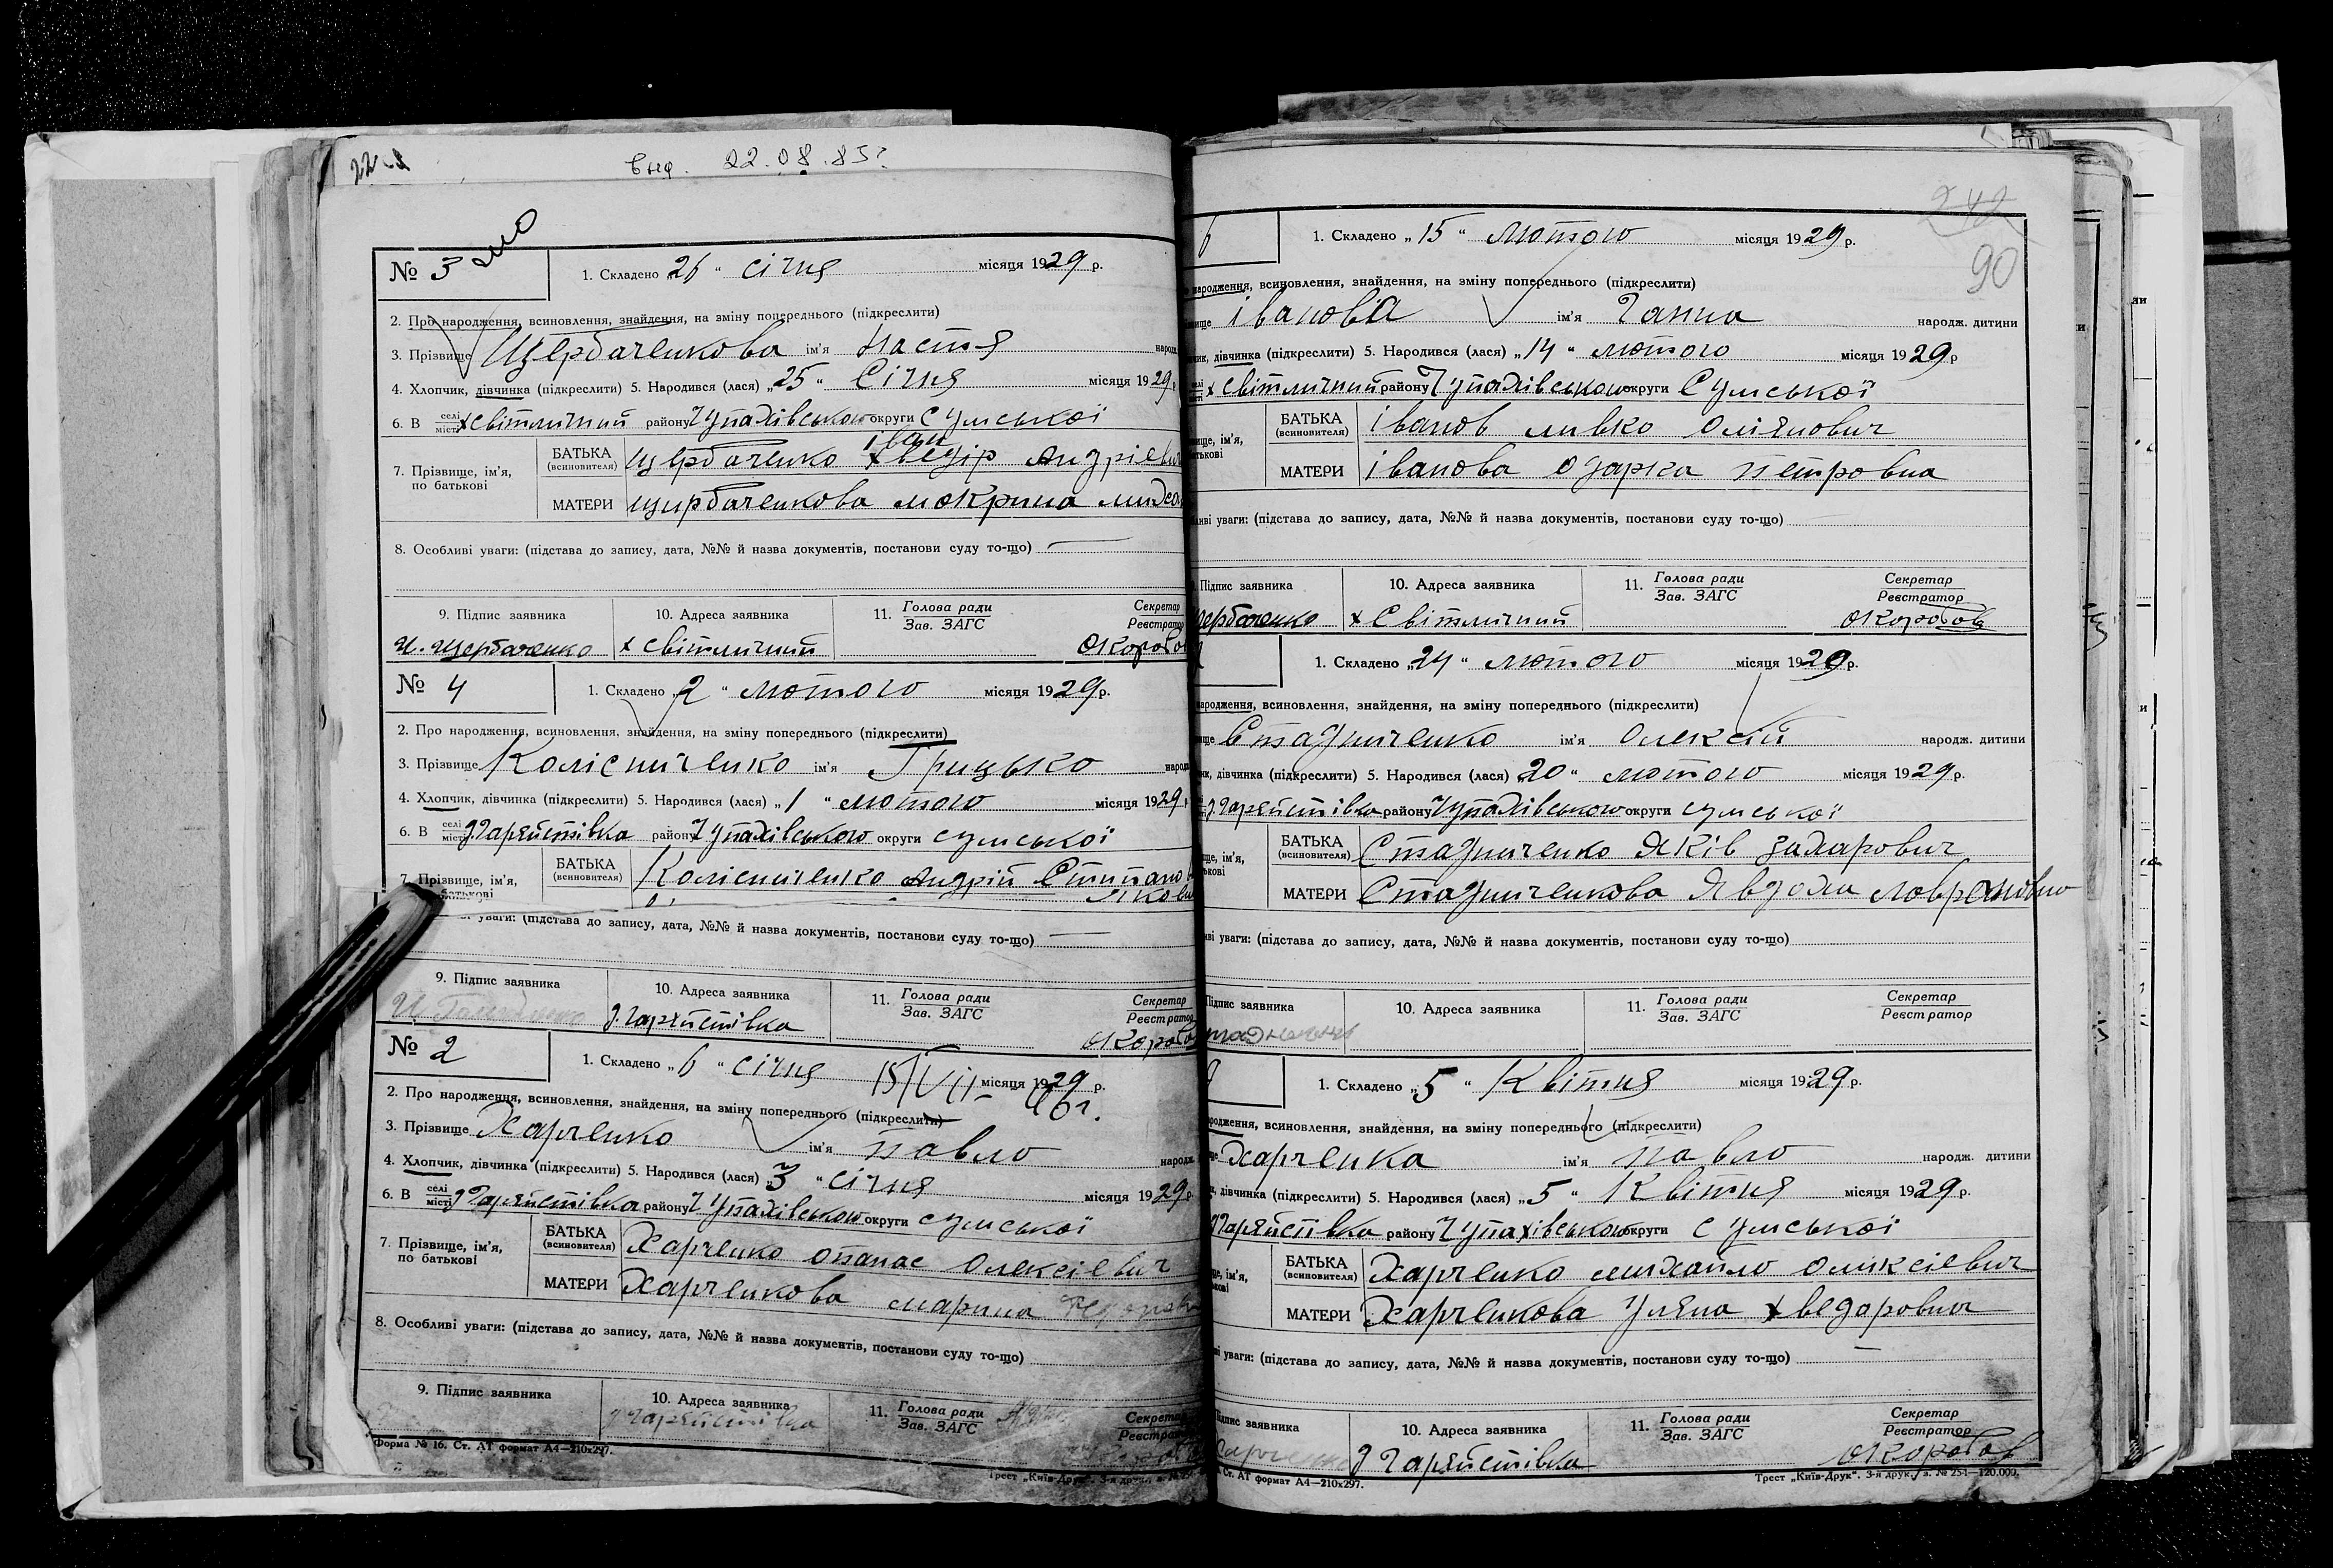 22
вид. 22.08.85г
№ 3
1. Складено 26 " січня місяця 1929 р.
2. Про народження, всиновлення, знайдення, на зміну попереднього (підкреслити)
3. Прізвище Щербаченкова ім'я Настя народ
4. Хлопчик, дівчинка (підкреслити) 5. Народився (лася) „25 " Січня місяця 1929
6. В селі місті х Світличний району Чупахівського округи Сумської
7. Прізвище, ім'я, по батькові
БАТЬКА (всиновителя) Щербаченко Іван Андріевич
МАТЕРИ Щирбаченкова мокрина миха
8. Особливі уваги: (підстава до запису, дата, №№ й назва документів, постанови суду то-що)
9. Підпис заявника 10. Адреса заявника 11. Голова ради Зав. ЗАГС Секретар Реєстратор
И. Щербаченко х Світличний Коробов
№ 4
1. Складено „2 " лютого місяця 1929 р.
2. Про народження, всиновлення, знайдення, на зміну попереднього (підкреслити)
3. Прізвище Колісниченко ім'я Грицько народ
4. Хлопчик, дівчинка (підкреслити) 5. Народився (лася) „1 " лютого місяця 1929
6. В селі місті району Чупахівського округи сумської
7. Прізвище, ім'я, батькові
БАТЬКА (всиновителя) Колісниченко Андрій Стипано
уваги: (підстава до запису, дата, №№ й назва документів, постанови суду то-що)
9. Підпис заявника 10. Адреса заявника 11. Голова ради Зав. ЗАГС Секретар Реєстратор
Коробо
№ 2
1. Складено „6 " січня місяця 1929 р.
15/VII- 46г.
2. Про народження, всиновлення, знайдення, на зміну попереднього (підкреслити)
3. Прізвище Харченко ім'я павло народж
4. Хлопчик, дівчинка (підкреслити) 5. Народився (лася) „3 " січня місяця 1929 р
6. В селі місті району Чупахівського округи сумської
7. Прізвище, ім'я, по батькові
БАТЬКА (всиновителя) Харченко опанас Олексіевич
МАТЕРИ Харченкова марина
8. Особливі уваги: (підстава до запису, дата, №№ й назва документів, постанови суду то-що)
9. Підпис заявника 10. Адреса заявника 11. Голова ради Зав. ЗАГС Секретар Реєстратор
Форма № 16. Ст. АТ формат А4—210х297.
Трест „Київ-Друк". 3-я друк.
242
90
6
1. Складено „15 " лютого місяця 1929 р.
народження, всиновлення, знайдення, на зміну попереднього (підкреслити)
Іванова ім'я Ганна народж. дитини
дівчинка (підкреслити) 5. Народився (лася) „14 " лютого місяця 1929 р
х Світличний району Чупахівського округи Сумської
БАТЬКА (всиновителя) Іванов
МАТЕРИ Іванова Одарка петровна
уваги: (підстава до запису, дата, №№ й назва документів, постанови суду то-що)
Підпис заявника 10. Адреса заявника 11. Голова ради Зав. ЗАГС Секретар Реєстратор
щербаченко х Світличний Коробов
1. Складено „24 " лютого місяця 1929 р.
народження, всиновлення, знайдення, на зміну попереднього (підкреслити)
Стадниченко ім'я Олексій народж. дитини
дівчинка (підкреслити) 5. Народився (лася) 20 " лютого місяця 1929 р.
району Чупахівського округи сумської
БАТЬКА (всиновителя) Стадниченко Яків Захарович
МАТЕРИ Стадниченкова Явдоха
уваги: (підстава до запису, дата, №№ й назва документів, постанови суду то-що)
Підпис заявника 10. Адреса заявника 11. Голова ради Зав. ЗАГС Секретар Реєстратор
1. Складено „5 " Квітня місяця 1929 р.
народження, всиновлення, знайдення, на зміну попереднього (підкреслити)
Харченка ім'я павло народж. дитини
дівчинка (підкреслити) 5. Народився (лася) „5 " Квітня місяця 1929 р.
району Чупахівського округи Сумської
БАТЬКА (всиновителя) Харченко михайло Оликсіевич
МАТЕРИ Харченкова Уляна Хведаровнич
уваги: (підстава до запису, дата, №№ й назва документів, постанови суду то-що)
Підпис заявника 10. Адреса заявника 11. Голова ради Зав. ЗАГС Секретар Реєстратор
Коробов
Ст. АТ формат А4—210х297.
Трест „Київ-Друк". 3-я друк., з. № 251—120.000.